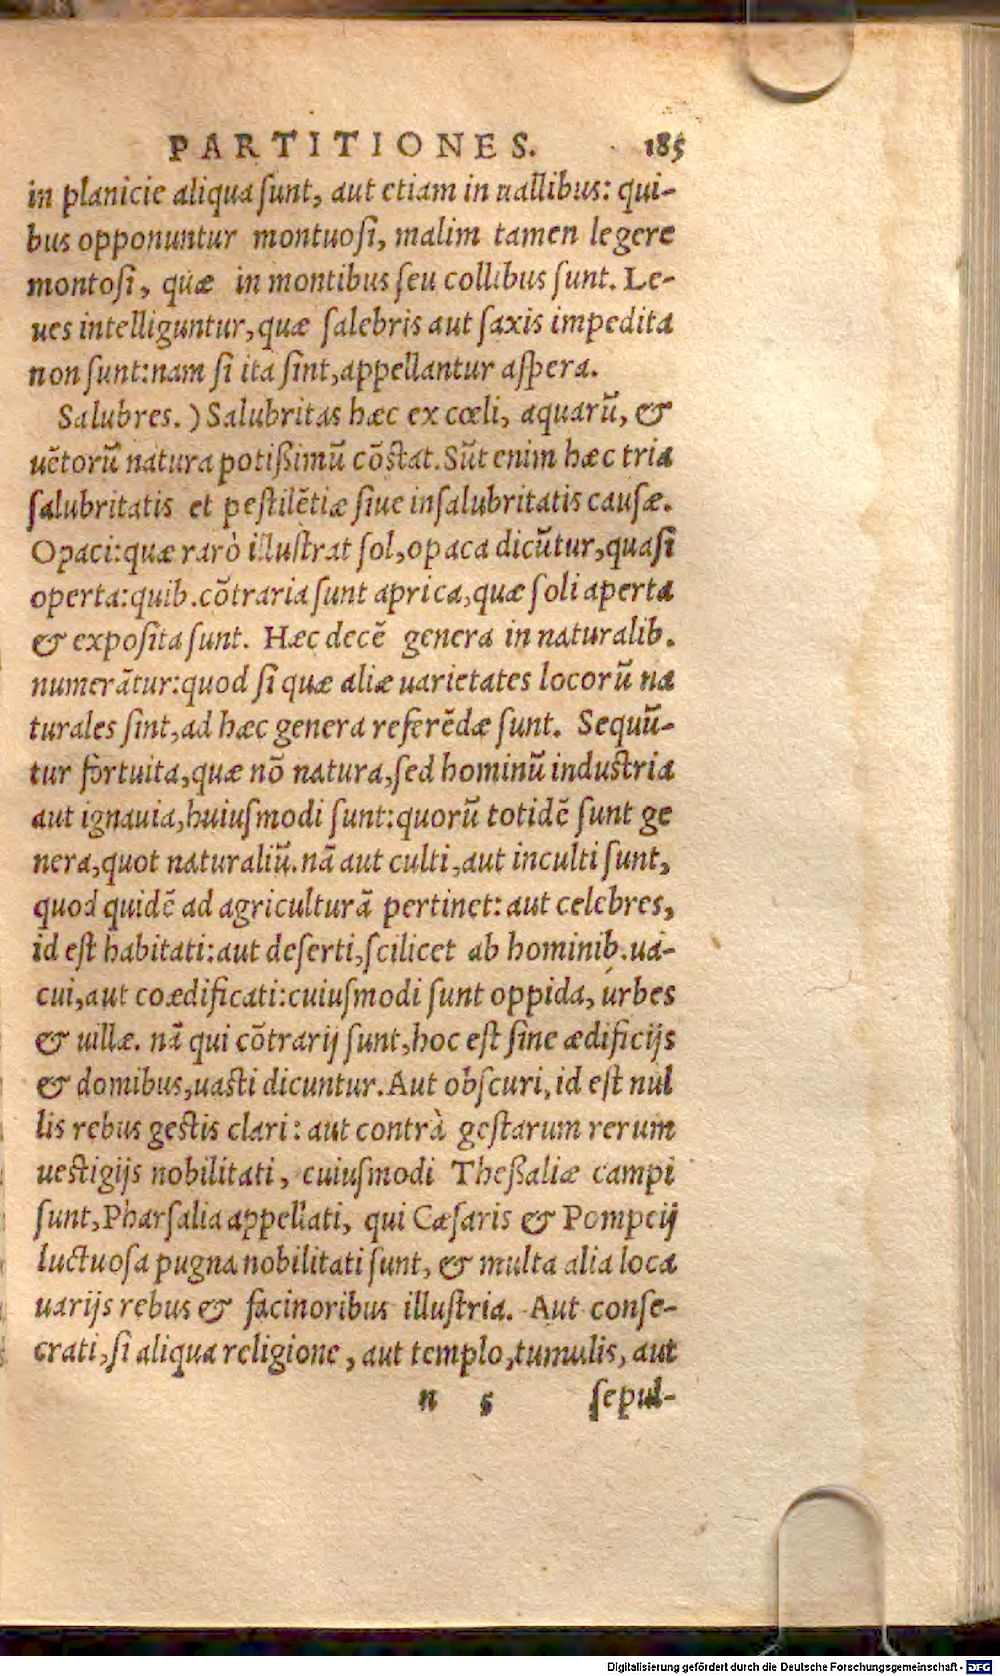 PARTITIONES. 185
in planicie aliqua ſunt, aut etiam in uallibus: qui-
bus opponuntur montuoſi, malim tamen legere
montoſi, quæ in montibus ſeu collibus ſunt. Le-
ues intelliguntur, quæ ſalebris aut ſaxis impedita
non ſunt: nam ſi ita ſint, appellantur aſpera.
Salubres.) Salubritas hæc ex cœli, aquarũ, &
uẽtorũ natura potißimũ cõstat. Sũt enim hæc tria
ſalubritatis et peſtilẽtiæ ſiue inſalubritatis cauſæ.
Opaci: quæ rarò illuſtrat ſol, opaca dicũtur, quaſi
operta: quib. cõtraria ſunt aprica, quæ ſoli aperta
& expoſita ſunt. Hæc decẽ genera in naturalib.
numerãtur: quod ſi quæ aliæ uarietates locorũ na
turales ſint, ad hæc genera referẽdæ ſunt. Sequũ-
tur fortuita, quæ nõ natura, ſed hominũ induſtria
aut ignauia, huiuſmodi ſunt: quorũ totidẽ ſunt ge
nera, quot naturaliũ. nã aut culti, aut inculti ſunt,
quod quidẽ ad agriculturã pertinet: aut celebres,
id eſt habitati: aut deſerti, ſcilicet ab hominib. ua-
cui, aut coædificati: cuiuſmodi ſunt oppida, urbes
& uillæ. nã qui cõtrarij ſunt, hoc eſt ſine ædificijs
& domibus, uasti dicuntur. Aut obſcuri, id eſt nul
lis rebus gestis clari: aut contrà geſtarum rerum
uestigijs nobilitati, cuiuſmodi Theßaliæ campi
ſunt, Pharſalia appellati, qui Cæſaris & Pompeij
luctuoſa pugna nobilitati ſunt, & multa alia loca
uarijs rebus & facinoribus illuſtria. Aut conſe-
crati, ſi aliqua religione, aut templo, tumulis, aut
n 5 ſepul-
Digitalisierung gefördert durch die Deutsche Forschungsgemeinschaft - DFG